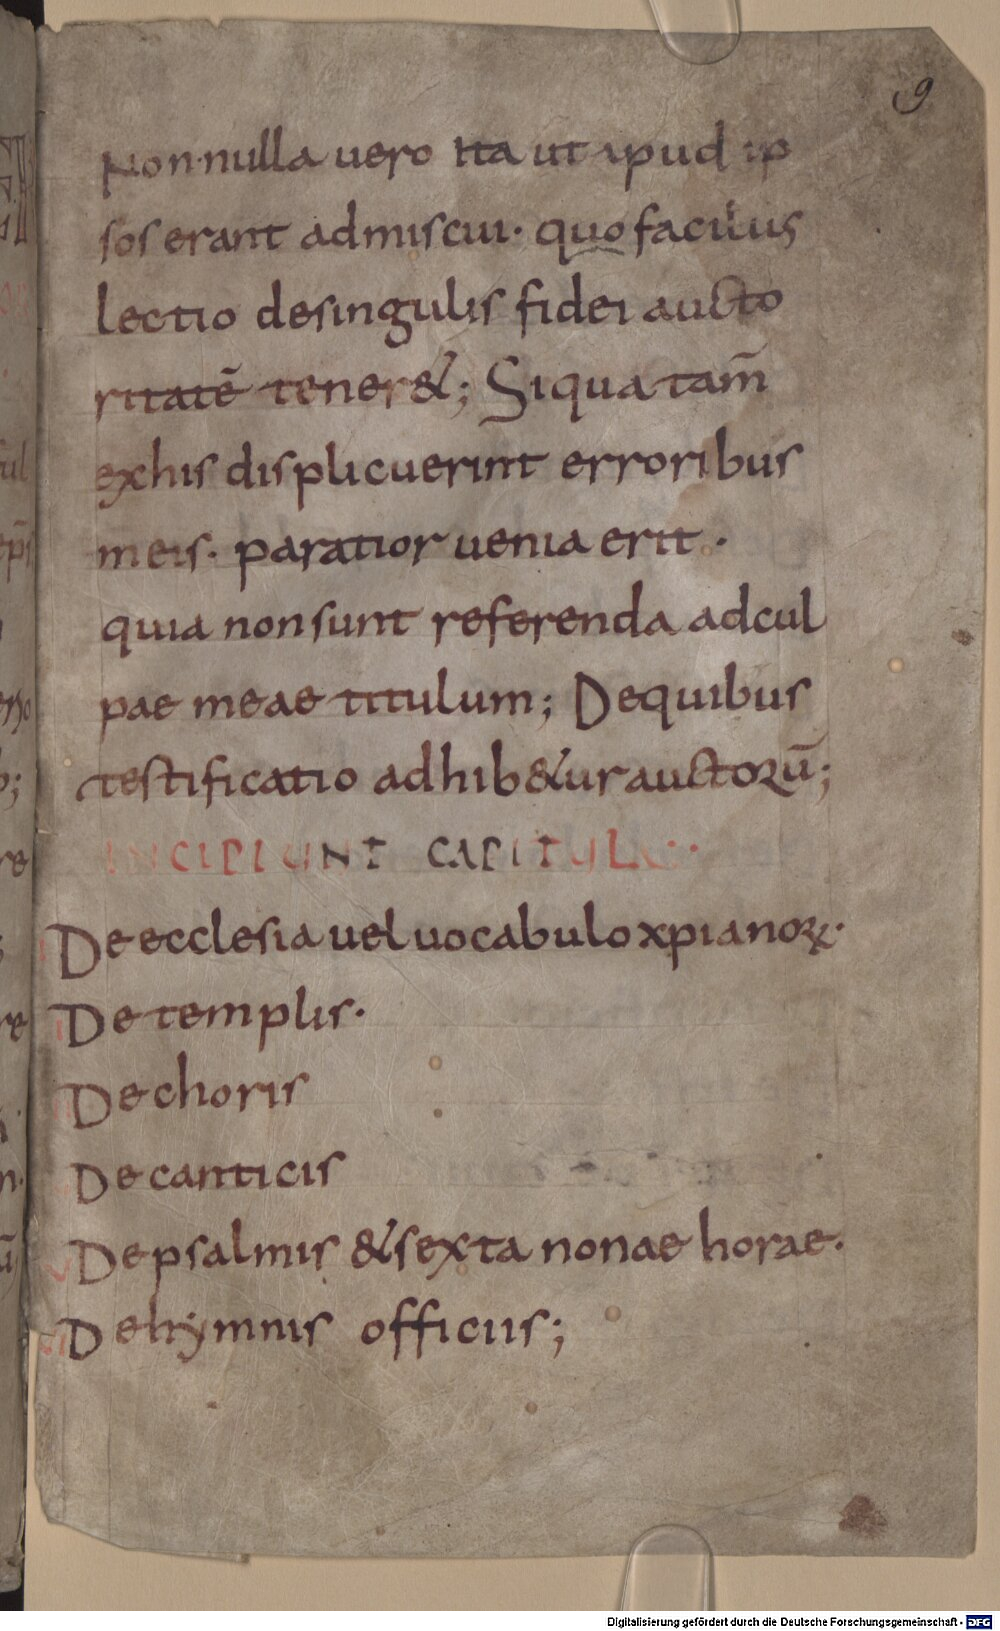 9
Non nulla uero ita ut apud ip
sos erant admiscui· quo facilius
lectio de singulis fidei aucto
ritatē tener&; Siqua tam̄
exhis displicuerint erroribus
meis· paratior uenia erit·
quia non sunt referenda ad cul
pae meae titulum; De quibus
testificatio adhib&ur auctorū;
INCIPIUNT CAPITULA·
De ecclesia uel uocabulo xpianoꝝ·
De templis·
De choris
De canticis
De psalmis & sexta nonae horae·
De hymnis officiis;
Digitalisierung gefördert durch die Deutsche Forschungsgemeinschaft - DFG